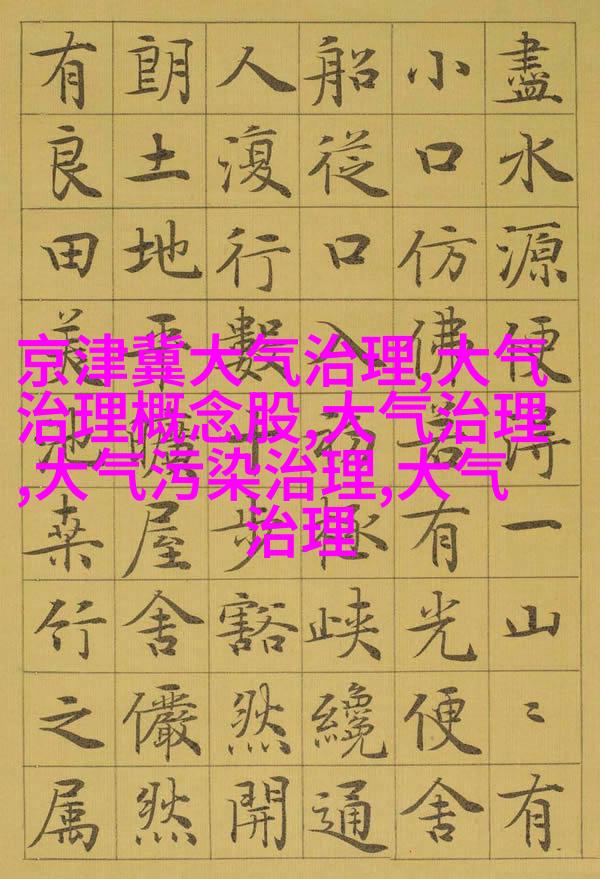 盡水源便得一山〻有
小口仿佛若有光便舍
船從口入初極峽纔通
人復行數十步豁然開
朗土地平曠屋舍儼然
有良田美池桑竹之属
京津冀大气治理,大气
治理概念股,大气治理
,大气污染治理,大气
治理